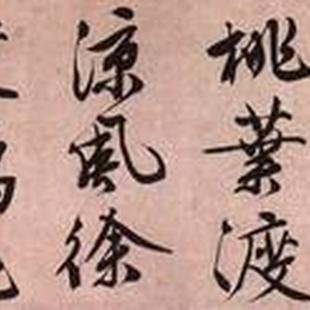 桃葉渡
涼風徐